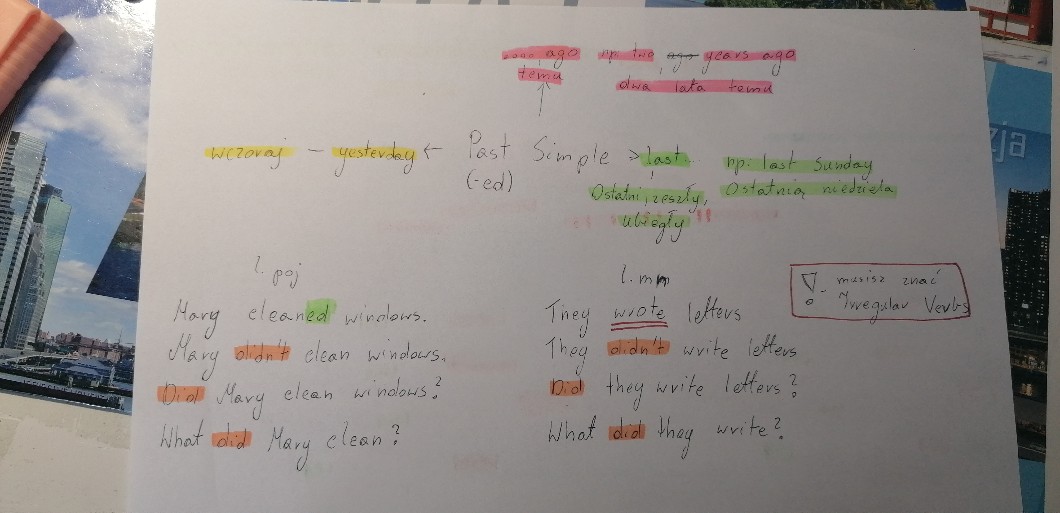 .... ago np. two ago years ago
temu dwa lata temu
wczoraj – yesterday ← Past Simple → last... np. last Sunday
(-ed) Ostatni, zeszły, Ostatnia niedziela
ubiegły
l. poj
Mary cleaned windows.
Mary didn't clean windows.
Did Mary clean windows?
What did Mary clean?
l. mn
They wrote letters
They didn't write letters
Did they write letters?
What did they write?
! - musisz znać
Irregular Verbs
zja